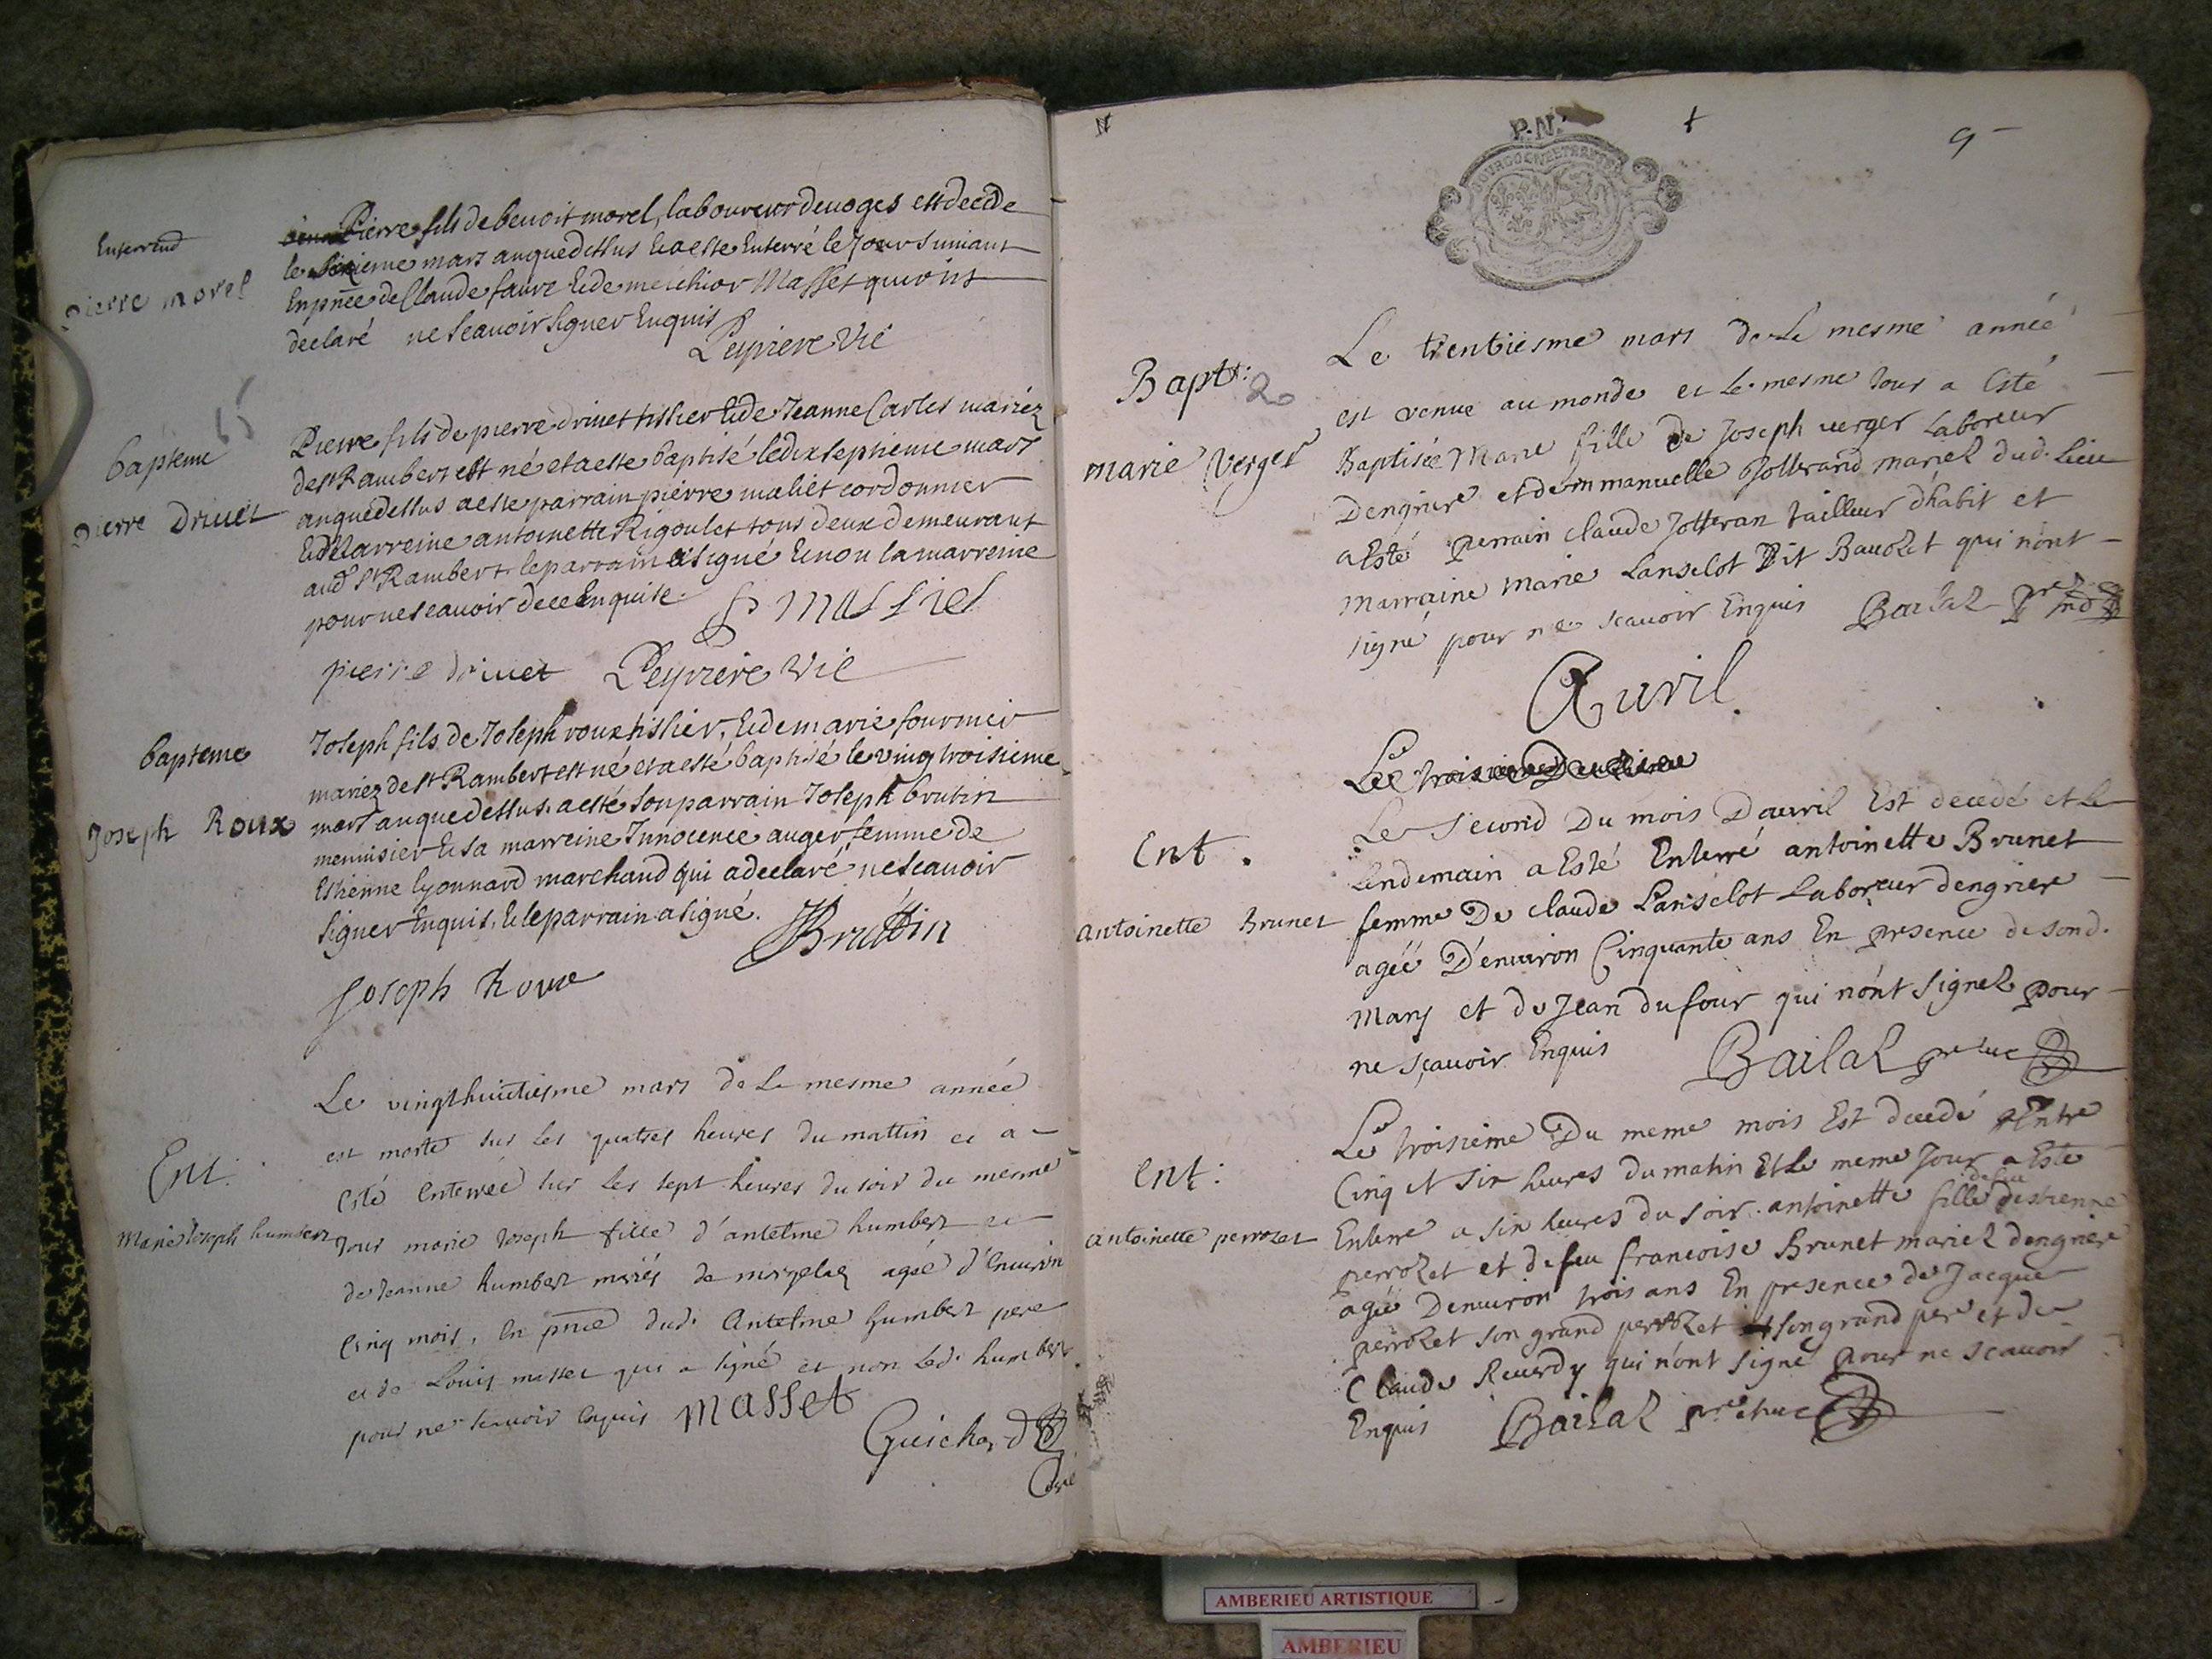 Enterremt
pierre morel
Pierre fils de benoit morel, laboureur de uoges est decede
le sixieme mars anque dessus & a este Enterré le Jour suiuant
En pnce de Claude faure & de melchior Masset qui ont
déclaré ne scauoir signer Enquis
Peyziere Vic
bapteme
15
pierre Driuet
Pierre fils de pierre driuet tissier & de Jeanne Carles mariez
de st Rambert est né et a este baptisé le dix septieme mars
anque dessus a este parrain pierre cordonnier
& Marreine antoinette Rigoulet tous deux demeurant
aud St Rambert le parrain a signé & non la marreine
pour ne scauoir de ce Enquise.
pierre driuet Peyziere Vic
bapteme
Joseph Roux
Joseph fils de Joseph roux tissier, & de marie fournier
mariez de st Rambert est né et a esté baptisé le vingtroisieme
mars anque dessus. a esté son parrain Joseph brutin
menuisier & sa marreine Innocence auger femme de
Estienne lyonnard marchand qui a declaré ne scauoir
signer Enquis, & le parrain a signé.
JBruttin
Joseph Roux
Ent.
Marie Joseph humbert
Le vingthuictiesme mars de la mesme année
est morte sur les quatres heures du mattin et a
esté enterrée sur les sept heures du soir du mesme
jour marie Joseph fille d'antelme humbert et
de Jeanne humbert mariés de agée d'enuiron
cinq mois, en pnce dud. Antelme humbert pere
et de Louis masset qui a signé et non led. humbert
pour ne scauoir enquis masset
Guichard
Curé
P.N.
BOURGOGNE ET BRESSE
9
Bapt:
20
marie Verger
Le trentiesme mars de la mesme année
est venue au monde et le mesme jour a esté
Baptisée Marie fille de Joseph verger Laboreur
Dengriere et demmanuelle Jotterand mariez dud. lieu
a Esté perrain claude Jotteran tailleur dhabit et
marraine marie Lanselot Dit Bauozet qui n'ont
signé pour ne scauoir Enquis Bailat
Auril.
Le troisieme
Ent.
antoinette Brunet
Le second Du mois Dauril Est decedé et le
lendemain a Esté Enterré antoinette Brunet
femme De claude Lanselot Laboreur dengriere
agée D'enuiron Cinquante ans En presence de sond.
mary et de Jean dufour qui n'ont signez pour
ne sçauoir Enquis Bailat
Ent:
antoinette perrozet
Le troisieme Du meme mois Est decedé Entre
Cinq et six heures du matin Et le meme Jour a Este
Enterre a six heures du soir. antoinette fille destienne
de feu
perrozet et de feu francoise Brunet mariez dengriere
agée Denuiron trois ans En presence de Jacque
perrozet son grand perrozet son grand pere et de
Claude Reuerdy qui n'ont signé pour ne scauoir
Enquis Bailat
AMBERIEU ARTISTIQUE
AMBERIEU